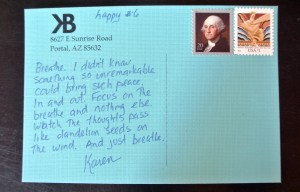 happy #6
KB
8627 E Sunrise Road
Portal, AZ 85632
20
USA
Breathe. I didn't know
something so unremarkable
could bring such peace.
In and out. Focus on the
breathe and nothing else.
Watch the thoughts pass
like dandelion seeds on
the wind. And just breathe.
Karen